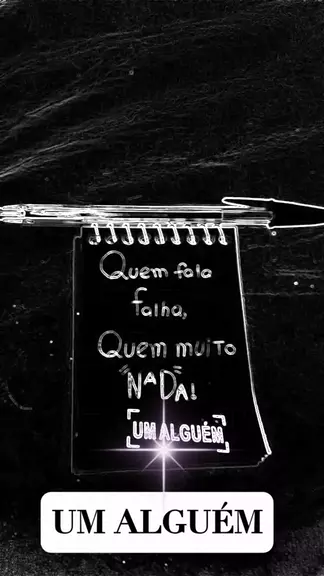 Quem fala
falha,
Quem muito
"NADA!
UM ALGUÉM
UM ALGUÉM